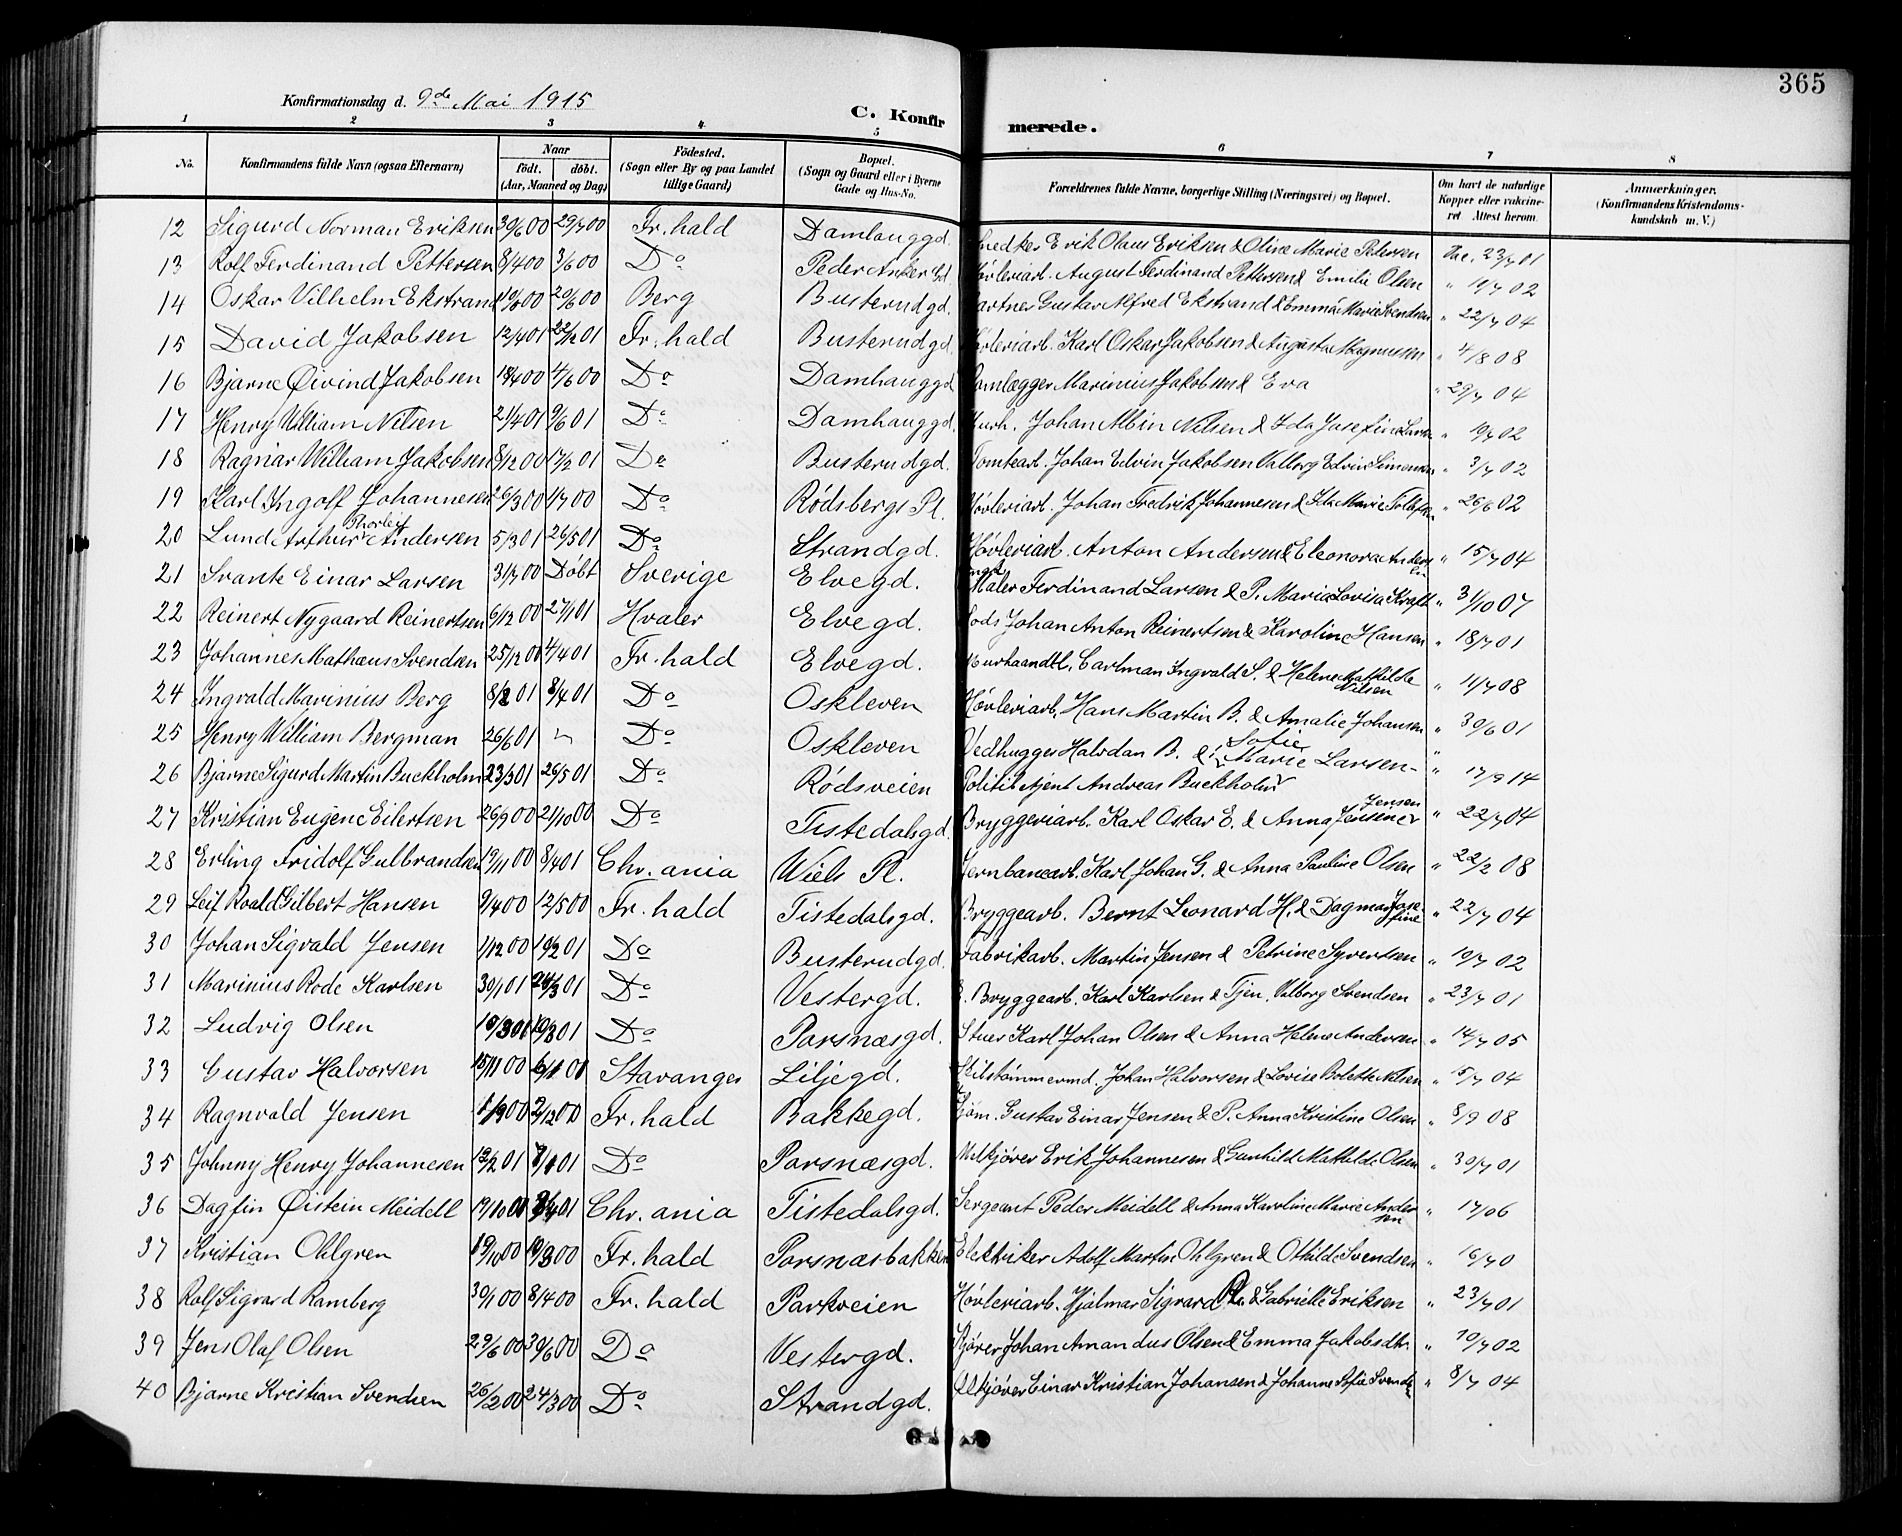 365
Konfirmationsdag d. 9de Mai 1915
C. Konfirmerede.
1 2 3 4 5 6 7 8
No. Konfirmandens fulde Navn (ogsaa Efternavn) Naar født. døbt. (Aar, Maaned og Dag) Födested. (Sogn eller By og paa Landet tillige Gaard) Bopæl. (Sogn og Gaard eller i Byerne Gade og Hus-No. Forældrenes fulde Navne, borgerlige Stilling (Næringsvei) og Bopæl. Om havt de naturlige Kopper eller vakcineret Attest herom. Anmærkninger. (Konfirmandens Kristendomskundskab m. V.)
12 Sigurd Norman Eriksen 30/6 00 29/7 00 Fr. hald Damhauggd. Snedker Erik Olaus Eriksen & Oline Marie Petersen 23/7 01
13 Rolf Ferdinand Pettersen 8/4 00 3/6 00 Do Peder Ankers Gd. Høvleriarb. August Ferdinand Petersen & Emilie Olsen " 19/7 02
14 Oskar Vilhelm Ekstrand Berg Busterudgd. Gartner Gustav Alfred Ekstrand & Emma Marie Svendsen " 22/7 04
15 David Jakobsen 12/4 01 22/12 01 Fr. hald Busterudgd. Høvleriarb. Karl Oskar Jakobsen & Augusta Magnusen " 4/8 08
16 Bjarne Øivind Jakobsen 18/4 00 4/6 00 Do Damhauggd. Marinius Jakobsen & Eva " 29/7 04
17 Henry William Nilsen 21/4 01 9/6 01 Do Damhauggd. Murh. Johan Albin Nilsen & Ida Josefine Larsen " 19/7 02
18 Ragnar William Jakobsen 8/12 00 17/2 01 Do Busterudgd. Tomtearb. Johan Edvin Jakobsen Valborg Edvin Simensen " 3/7 02
19 Karl Ingolf Johannesen 26/3 00 1/7 00 Do Rødsbergs Pl. Høvleriarb. Johan Fredrik Johannesen & Ida Marie " 26/6 02
20 Lund Arthur Thorleif Andersen 5/3 01 26/5 01 Do Strandgd. Høvleriarb. Anton Andersen & Eleonora Andersen " 15/7 04
21 Svante Einar Larsen 31/7 00 Døbt Sverige Elvegd. Maler Ferdinand Larsen & P. Maria Lovisa Kraft " 31/10 07
22 Reinert Nygaard Reinertsen 6/12 00 27/1 01 Hvaler Elvegd. Lods Johan Anton Reinertsen & Karoline Hansen " 18/7 01
23 Johannes Mathæus Svendsen 25/12 00 4/4 01 Fr. hald Elvegd. Murhaandtl. Carlman Ingvald S. & Helene Mathilde Nilsen " 11/7 08
24 Ingvald Marinius Berg 8/2 01 8/4 01 Do Oskleven Høvleriarb. Hans Martin B. & Amalie Johansen " 30/6 01
25 Henry William Bergman 26/6 01 " Do Oskleven Vedhugger Halvdan B. & Sofie Marie Larsen "
26 Bjarne Sigurd Martin Buckholm 23/3 01 26/5 01 Do Rødsveien Politibetjent Andreas Buckholm " 17/9 14
27 Kristian Eugène Eilertsen 26/9 00 21/10 00 Do Tistedalsgd. Bryggeriarb. Karl Oskar E. & Anna Jensen " 22/7 04
28 Erling Fridolf Gulbrandsen 19/11 00 8/4 01 Chr. ania Wiels Pl. Jernbanearb. Karl Johan G. & Anna Pauline Olsen " 22/2 08
29 Leif Roald Gilbert Hansen 9/4 00 12/5 00 Fr. hald Tistedalsgd. Bryggearb. Bernt Leonard H. & Dagmar Josefine " 22/7 04
30 Johan Sigvald Jensen 1/12 00 10/2 01 Do Busterudgd. Fabrikarb. Martin Jensen & Petrine Syvertsen " 19/7 02
31 Marinius Rode Karlsen 30/1 01 24/3 01 Do Vestergd. Bryggearb. Karl Karlsen & Tjen. Valborg Svendsen " 23/7 01
32 Ludvig Olsen Do Porsnæsgd. Stuer Karl Johan Olsen & Anna Helene Andersen " 14/7 05
33 Gustav Halvorsen 15/11 00 Stavanger Liljegd. Skibstømmermd. Johan Halvorsen & Lovise Bolette Nilsen " 15/7 04
34 Ragnvald Jensen 1/9 00 2/12 00 Fr. hald Bakkegd. Sjøm. Gustav Einar Jensen & P. Anna Kristine Olsen " 8/9 08
35 Johnny Henry Johannesen 12/2 01 Do Porsnæsgd. Melkjører Erik Johannesen & Gunhilde Mathilde Olsen " 30/7 01
36 Dagfin Øistein Meidell 19/10 00 Chr. ania Tistedalsgd. Sergeant Peder Meidell & Anna Karoline Marie Andersen " 17/06
37 Kristian Ohlgren Fr. hald Porsnæsbakken Elektriker Adolf Martin Ohlgren & Othilde Svendsen " 16/7 0
38 Rolf Sigvard Ramberg 30/1 00 8/4 00 Fr. hald Parkveien Høvleriarb. Hjalmar Sigvard R. & Gabrielle Eriksen " 23/7 01
39 Jens Olaf Olsen 29/6 00 30/6 00 Do Vestergd. Kjører Johan Amandus Olsen & Emma Jakobsdtr. " 10/7 02
40 Bjarne Kristian Svendsen 26/2 00 24/3 00 Do Strandgd. Ølkjører Einar Kristian Johansen & Johanne Sofie Svends " 8/7 04